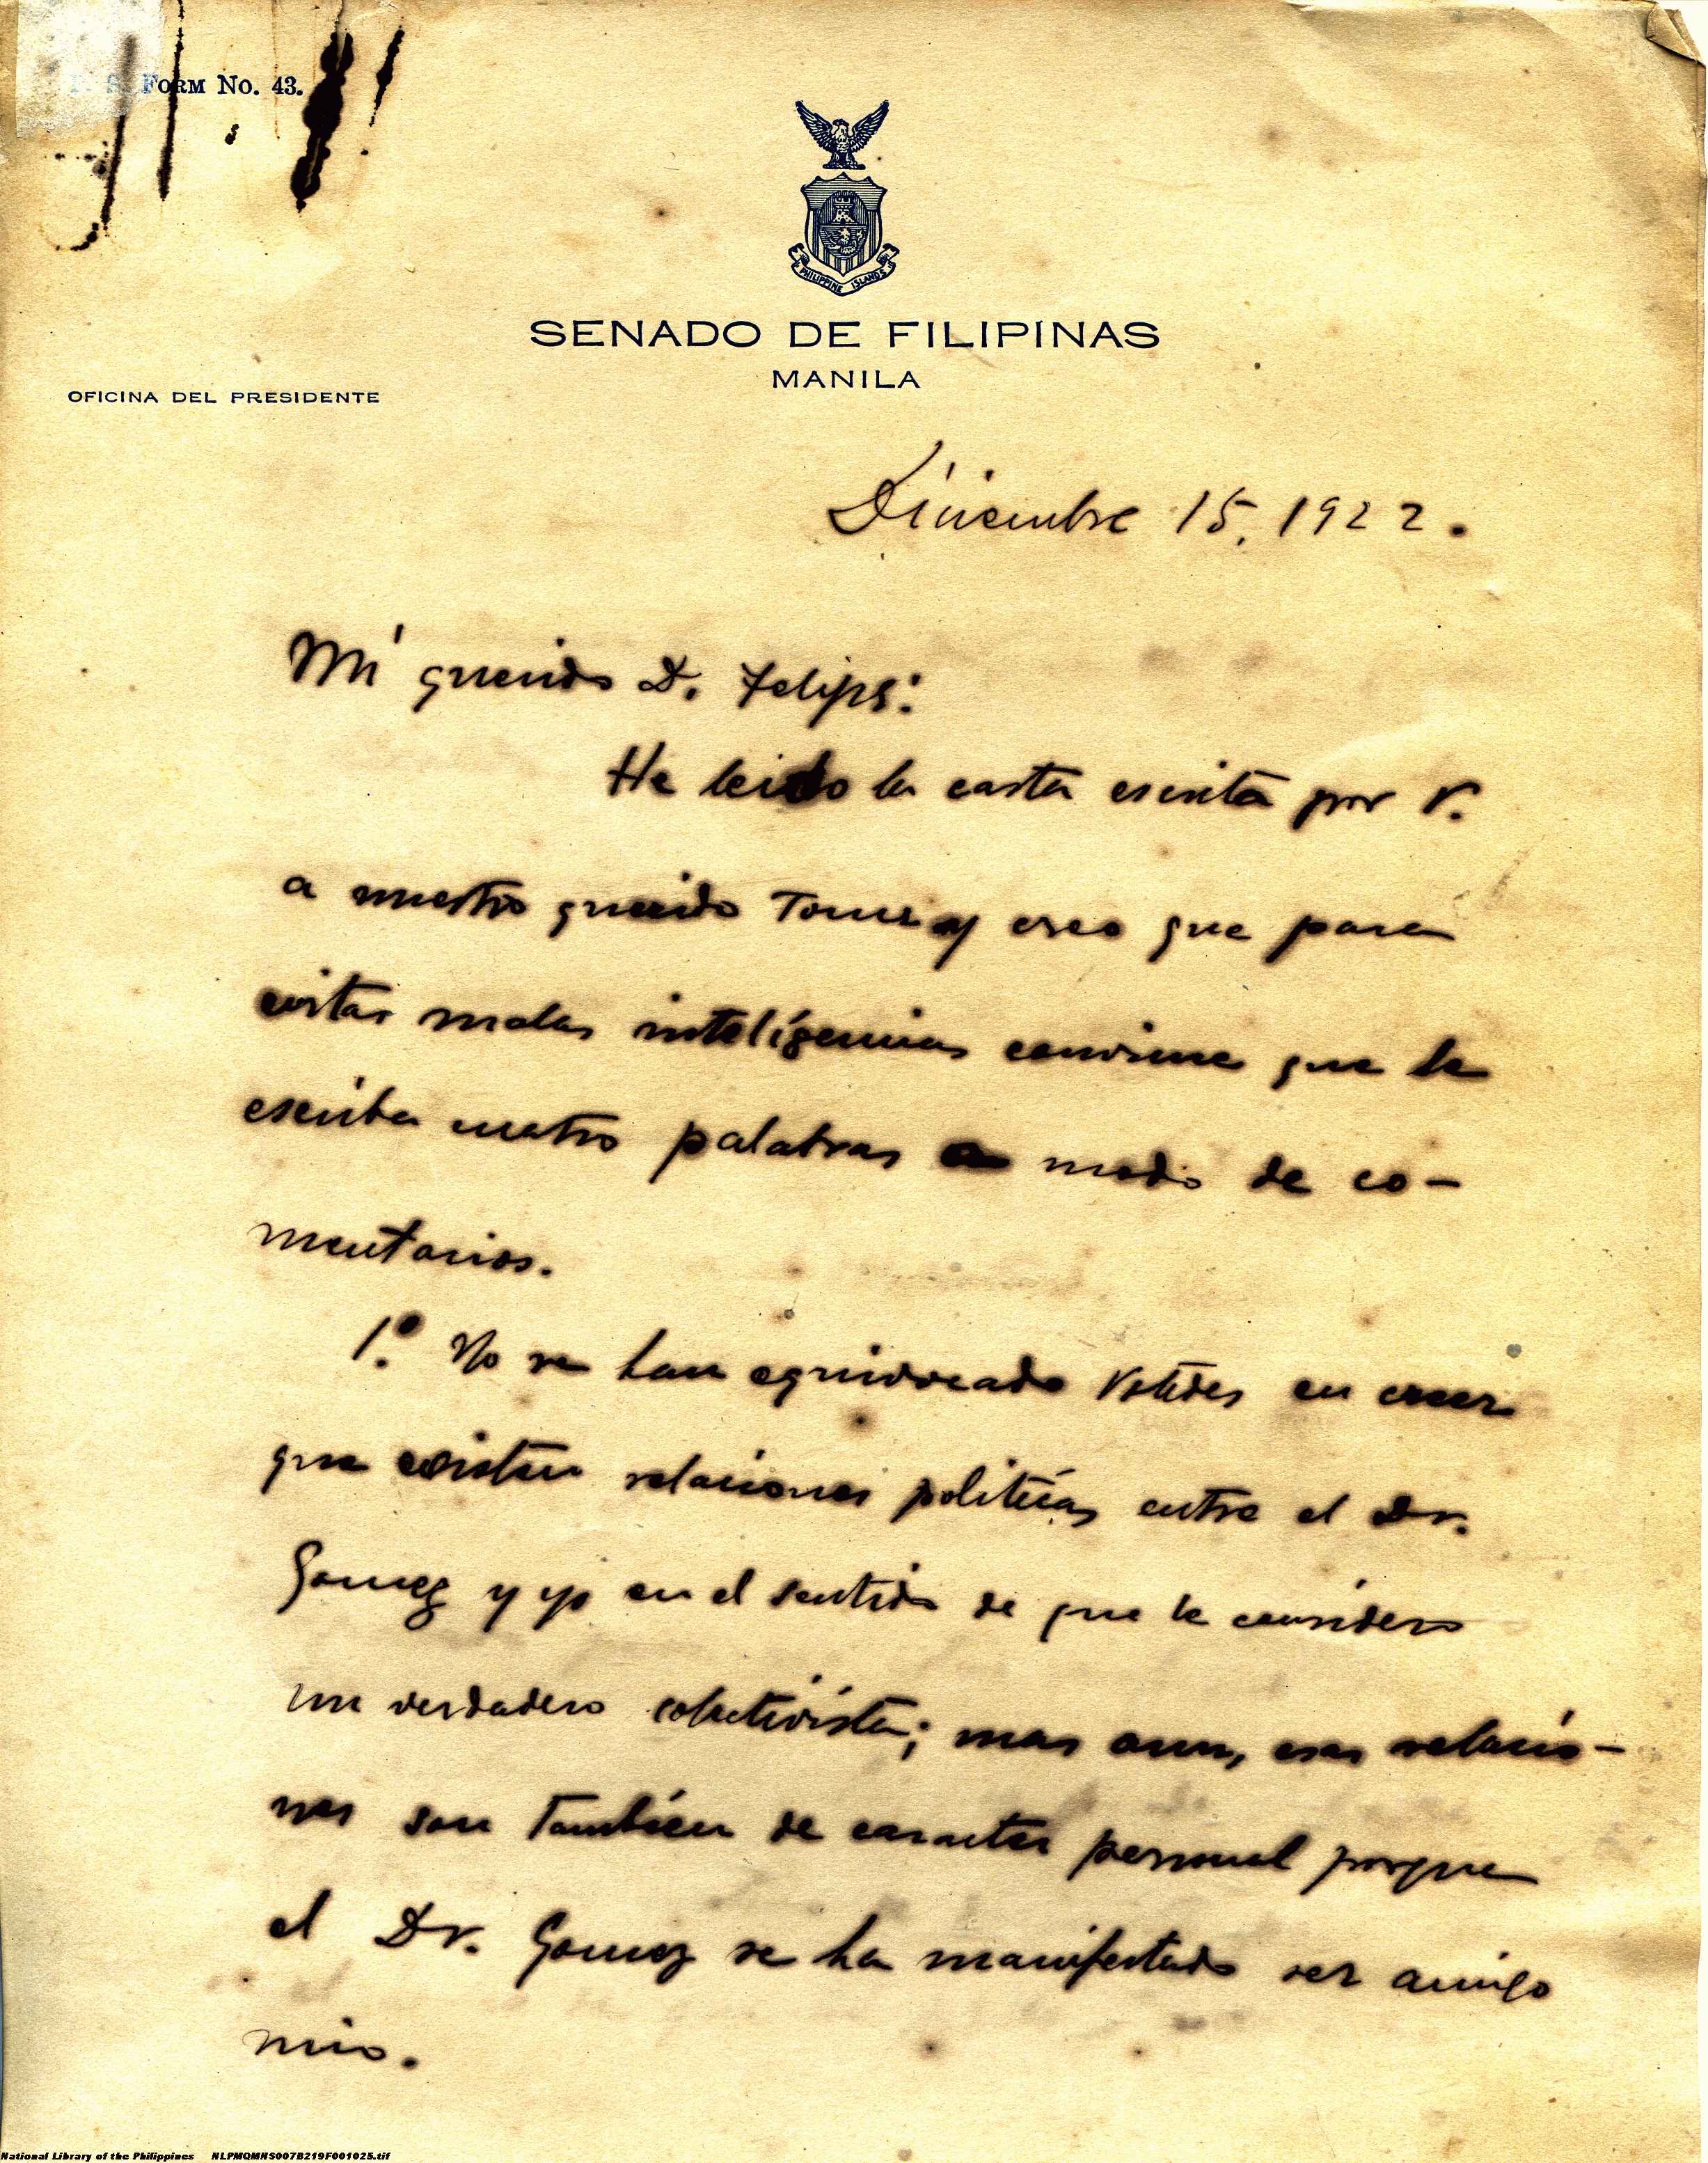 P. S. FORM NO. 43.
PHILIPPINE ISLANDS
SENADO DE FILIPINAS
MANILA
OFICINA DEL PRESIDENTE
Diciembre 15, 1922.
Mi querido D. Felipe:
He leido la carta escrita por V.
a nuestro querido Tomas y creo que para
evitar malas inteligencias conviene que le
escriba cuatro palabras a modo de co-
mentarios.
1.º No se han equivocado Vstedes en creer
que existen relaciones politicas entre el Dr.
Gomez y yo en el sentido de que le considero
un verdadero colectivista; mas aun, esas relacio-
nes son también de caracter personal porque
el Dr. Gomez se ha manifestado ser amigo
mio.
National Library of the Philippines NLPMQMNS007B219F001025.tif